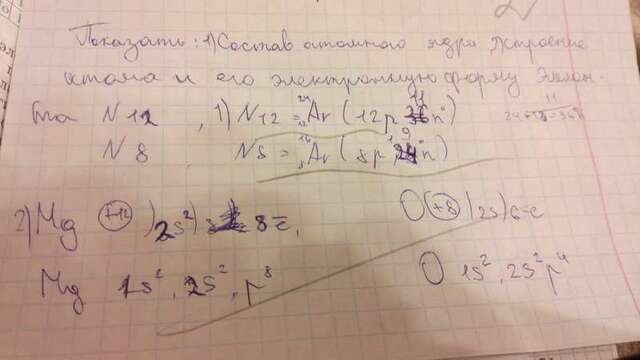 Показать: 1) Состав атомного ядра, строение
атома и его электронную форму Элемен-
та N 12 , 1) N12 = ²⁴₁₂Ar ( 12p, 12 n°)
N 8 N8 = ¹⁶₈Ar ( 8p, 9 n°)
2) Mg (+12) ) 2s² ) 8ē, O (+8) ) 2s ) 6ē
Mg 1s², 2s², p⁸ O 1s², 2s² p⁴